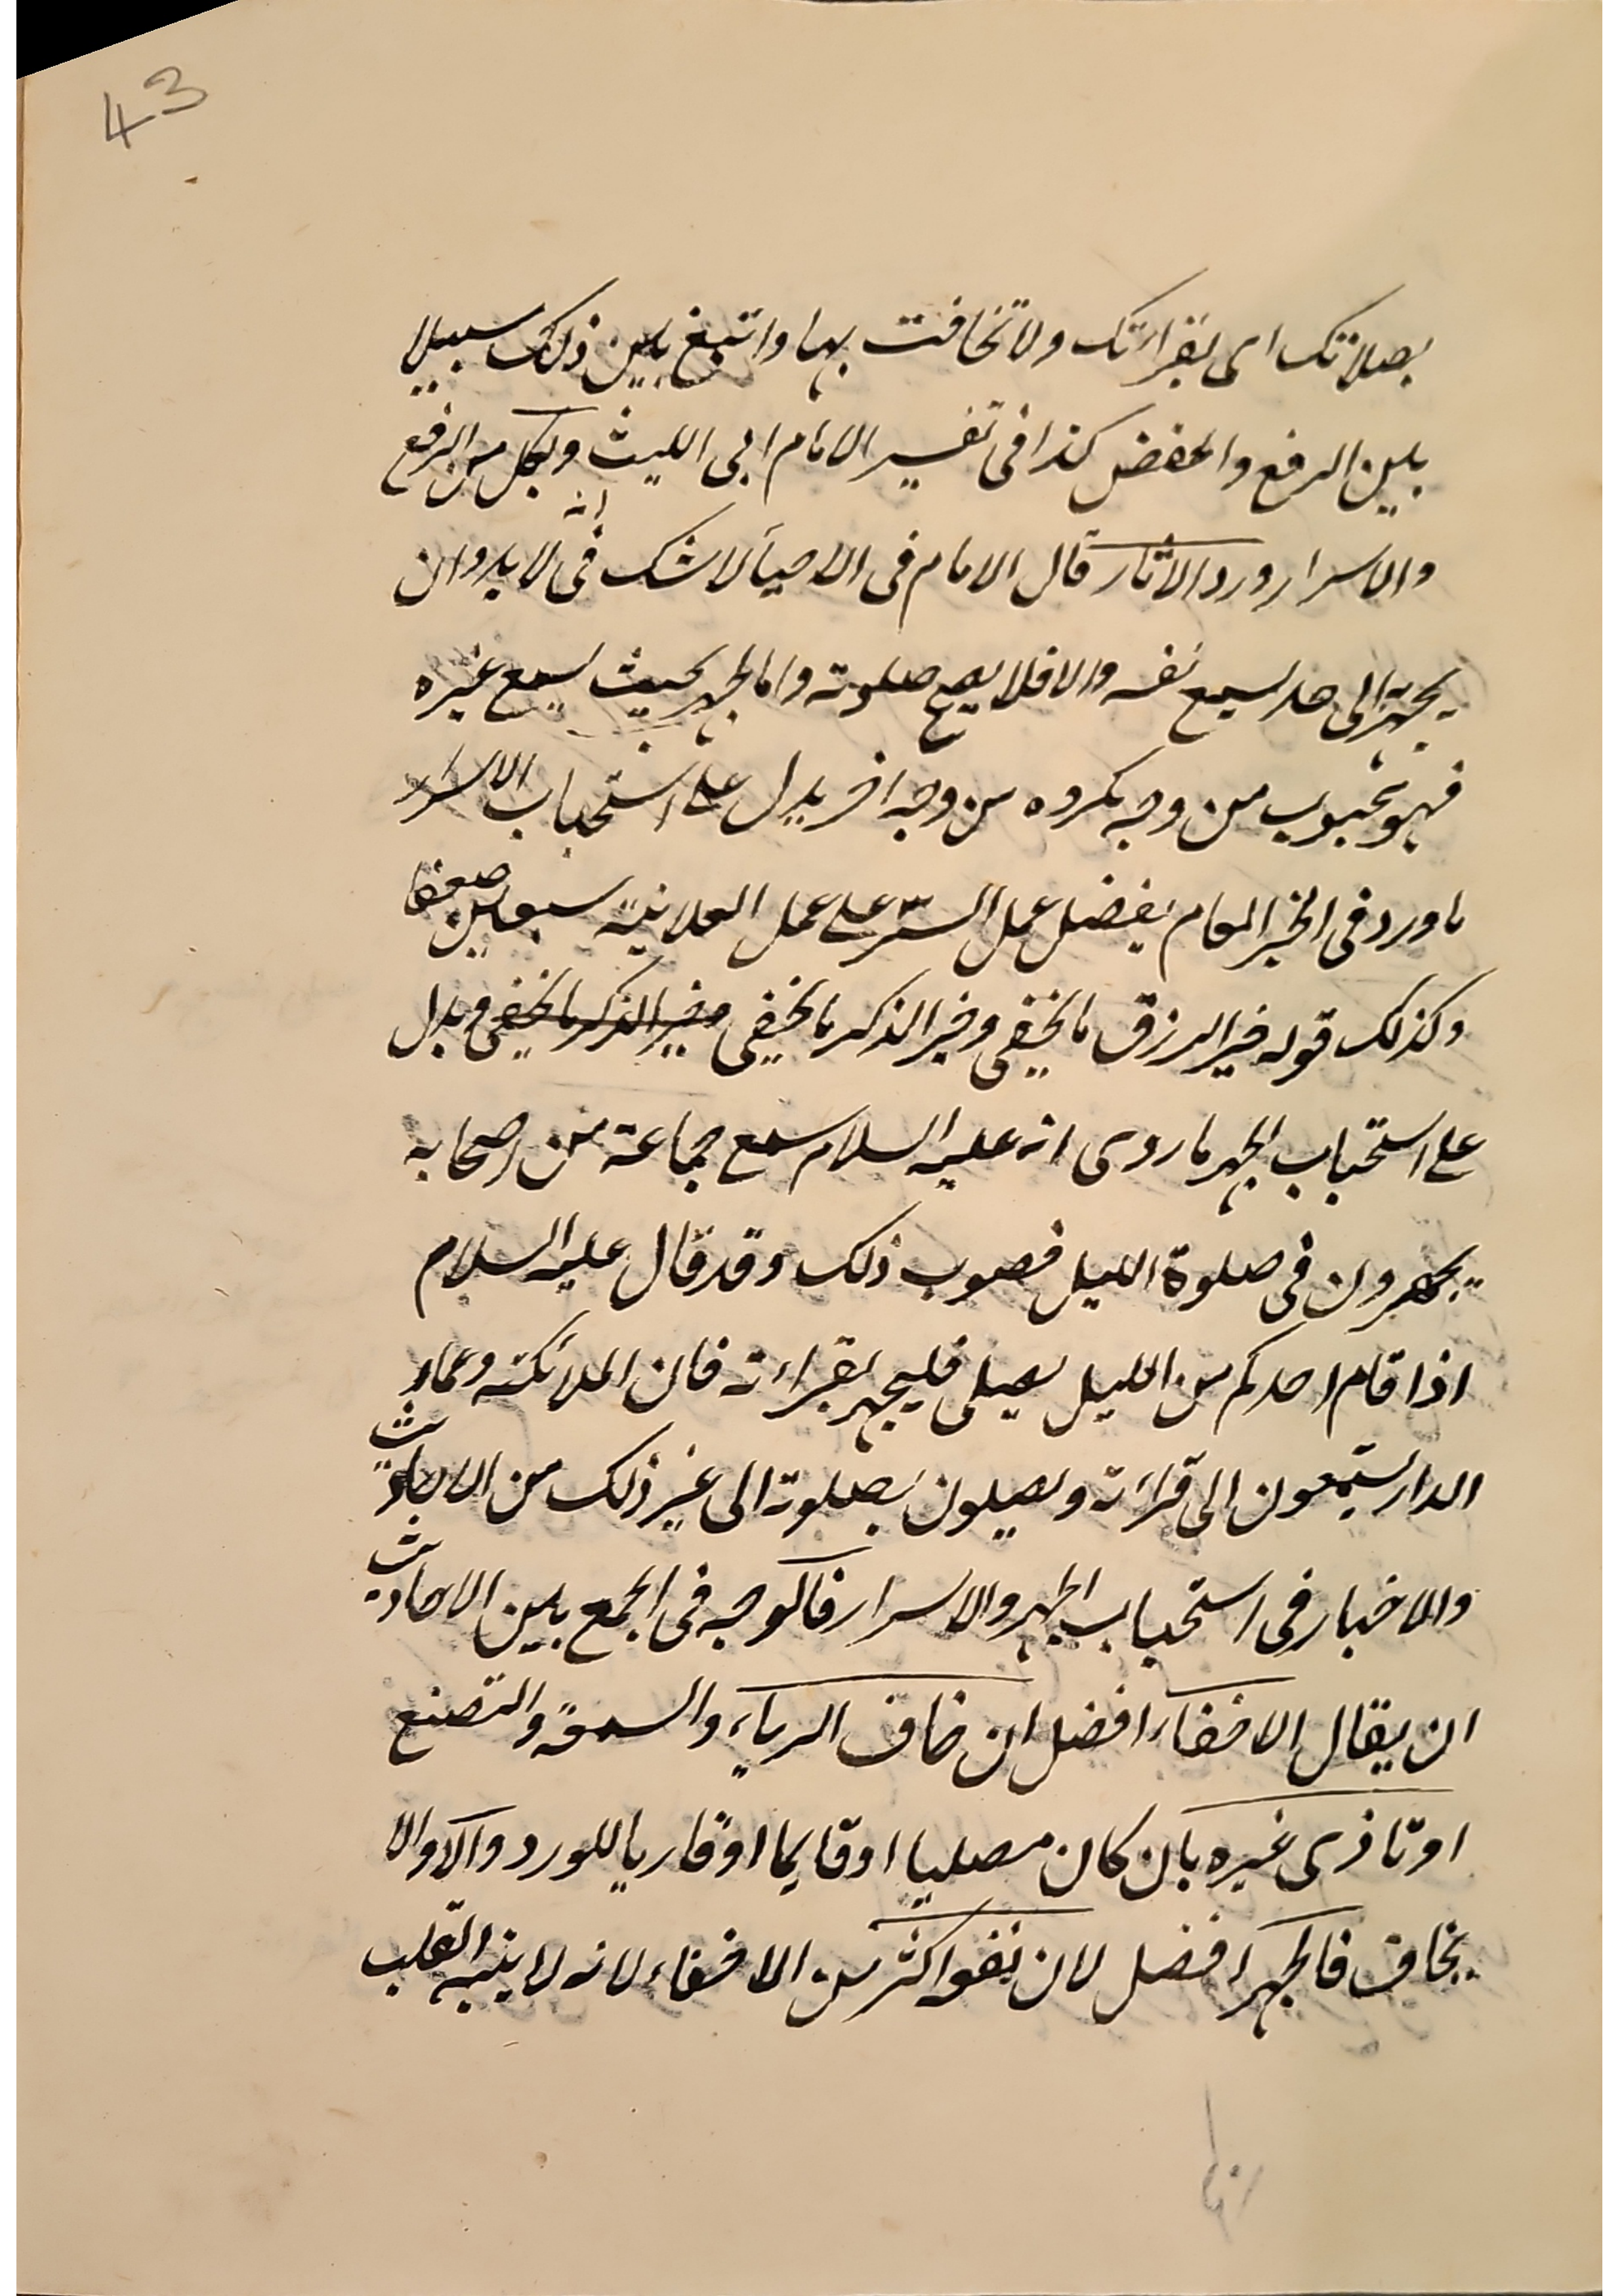 43
بصلاتک ای بقرأتک ولا تخافت بها واتبغ بین ذلک سبیلا
بین الرفع والخفض کذا فی تفسیر الامام ابی اللیث ولکل من الرفع
والاسرار ورد الآثار قال الامام فی الاحیآ لا شک فی انه لابد وان
یجهر الی حد یسمع نفسه والا فلا یصح صلوته واما الجهر بحیث یسمع غیره
فهو محبوب من وجه مکروه من وجه اخر یدل علی استحباب الاسرار
ما ورد فی الخبر العام یفضل عمل السّر علی عمل العلانیة سبعین ضعفا
وکذلک قوله خیر الرزق ما یخفی وخیر الذکر ما یخفی وخیر الذکر ما یخفی ویدل
علی استحباب الجهر ما روی انه علیه السلام سمع جماعة من اصحابه
یجهرون فی صلوة اللیل فصوب ذلک وقد قال علیه السلام
اذا قام احدکم من اللیل یصلی فلیجهر بقراءته فان الملائکة وعمار
الدار یستمعون الی قرأته ویصلون بصلوته الی غیر ذلک من الاحادیث
والاخبار فی استحباب الجهر والاسرار فالوجه فی الجمع بین الاحادیث
ان یقال الاخفاء افضل ان خاف الریاء والسمعة والتصنع
او تاذی غیره بان کان مصلیا او قایما او قاریا للورد والا والا
یخاف فالجهر افضل لان نفعه اکثر من الاخفاء لانه لا ینبه القلب